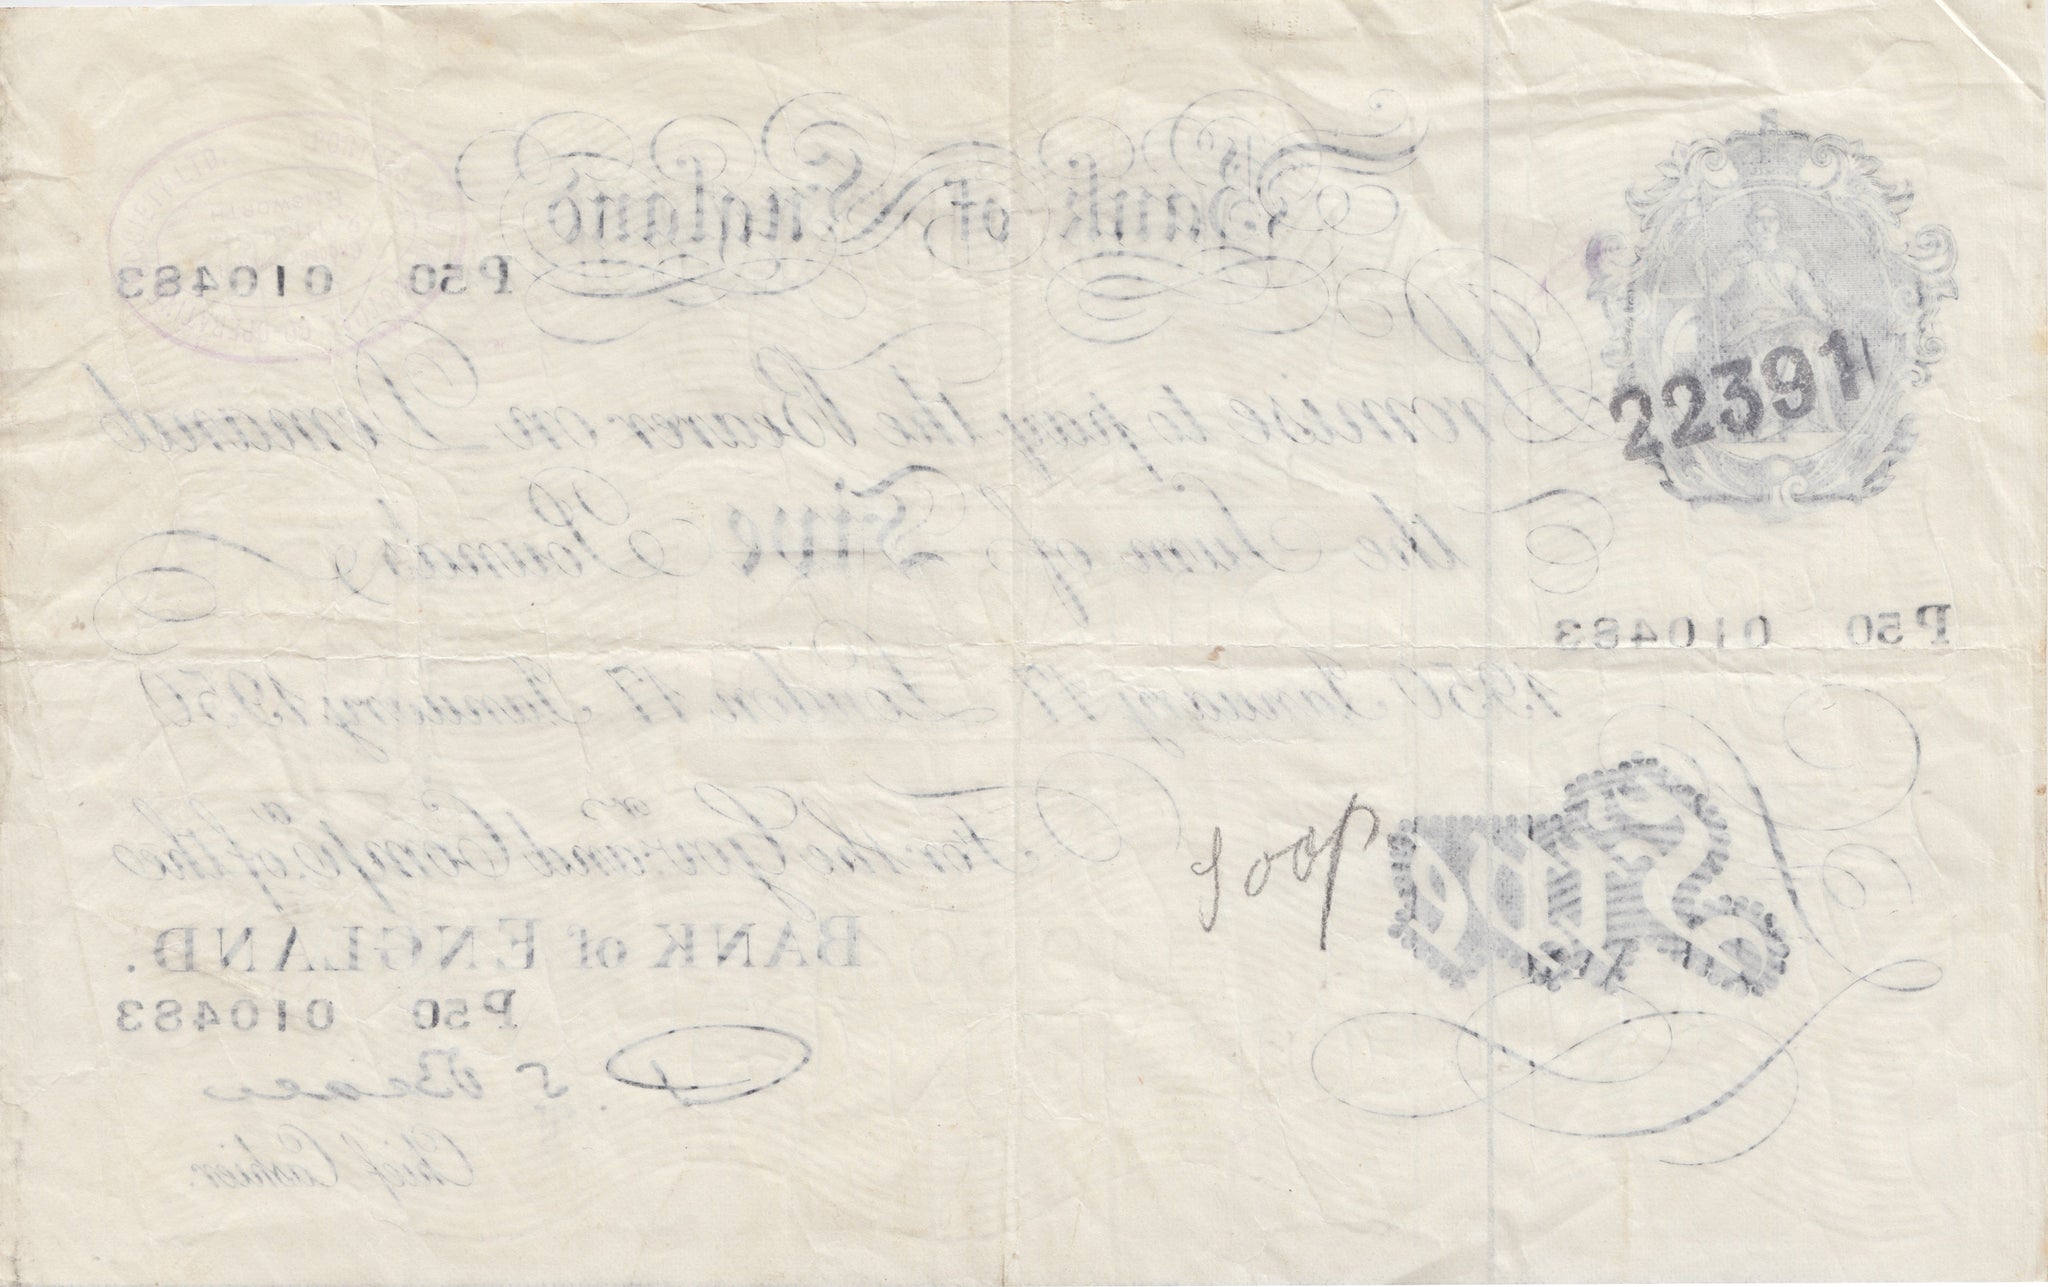 Bank of England
P50 010483
22391
Promise to pay the Bearer on Demand
the Sum of Five Pounds
P50 010483
1950 January 17 London 17 January 1950
For the Gov.r and Comp.a of the
Five
BANK of ENGLAND.
P50 010483
Chief Cashier.